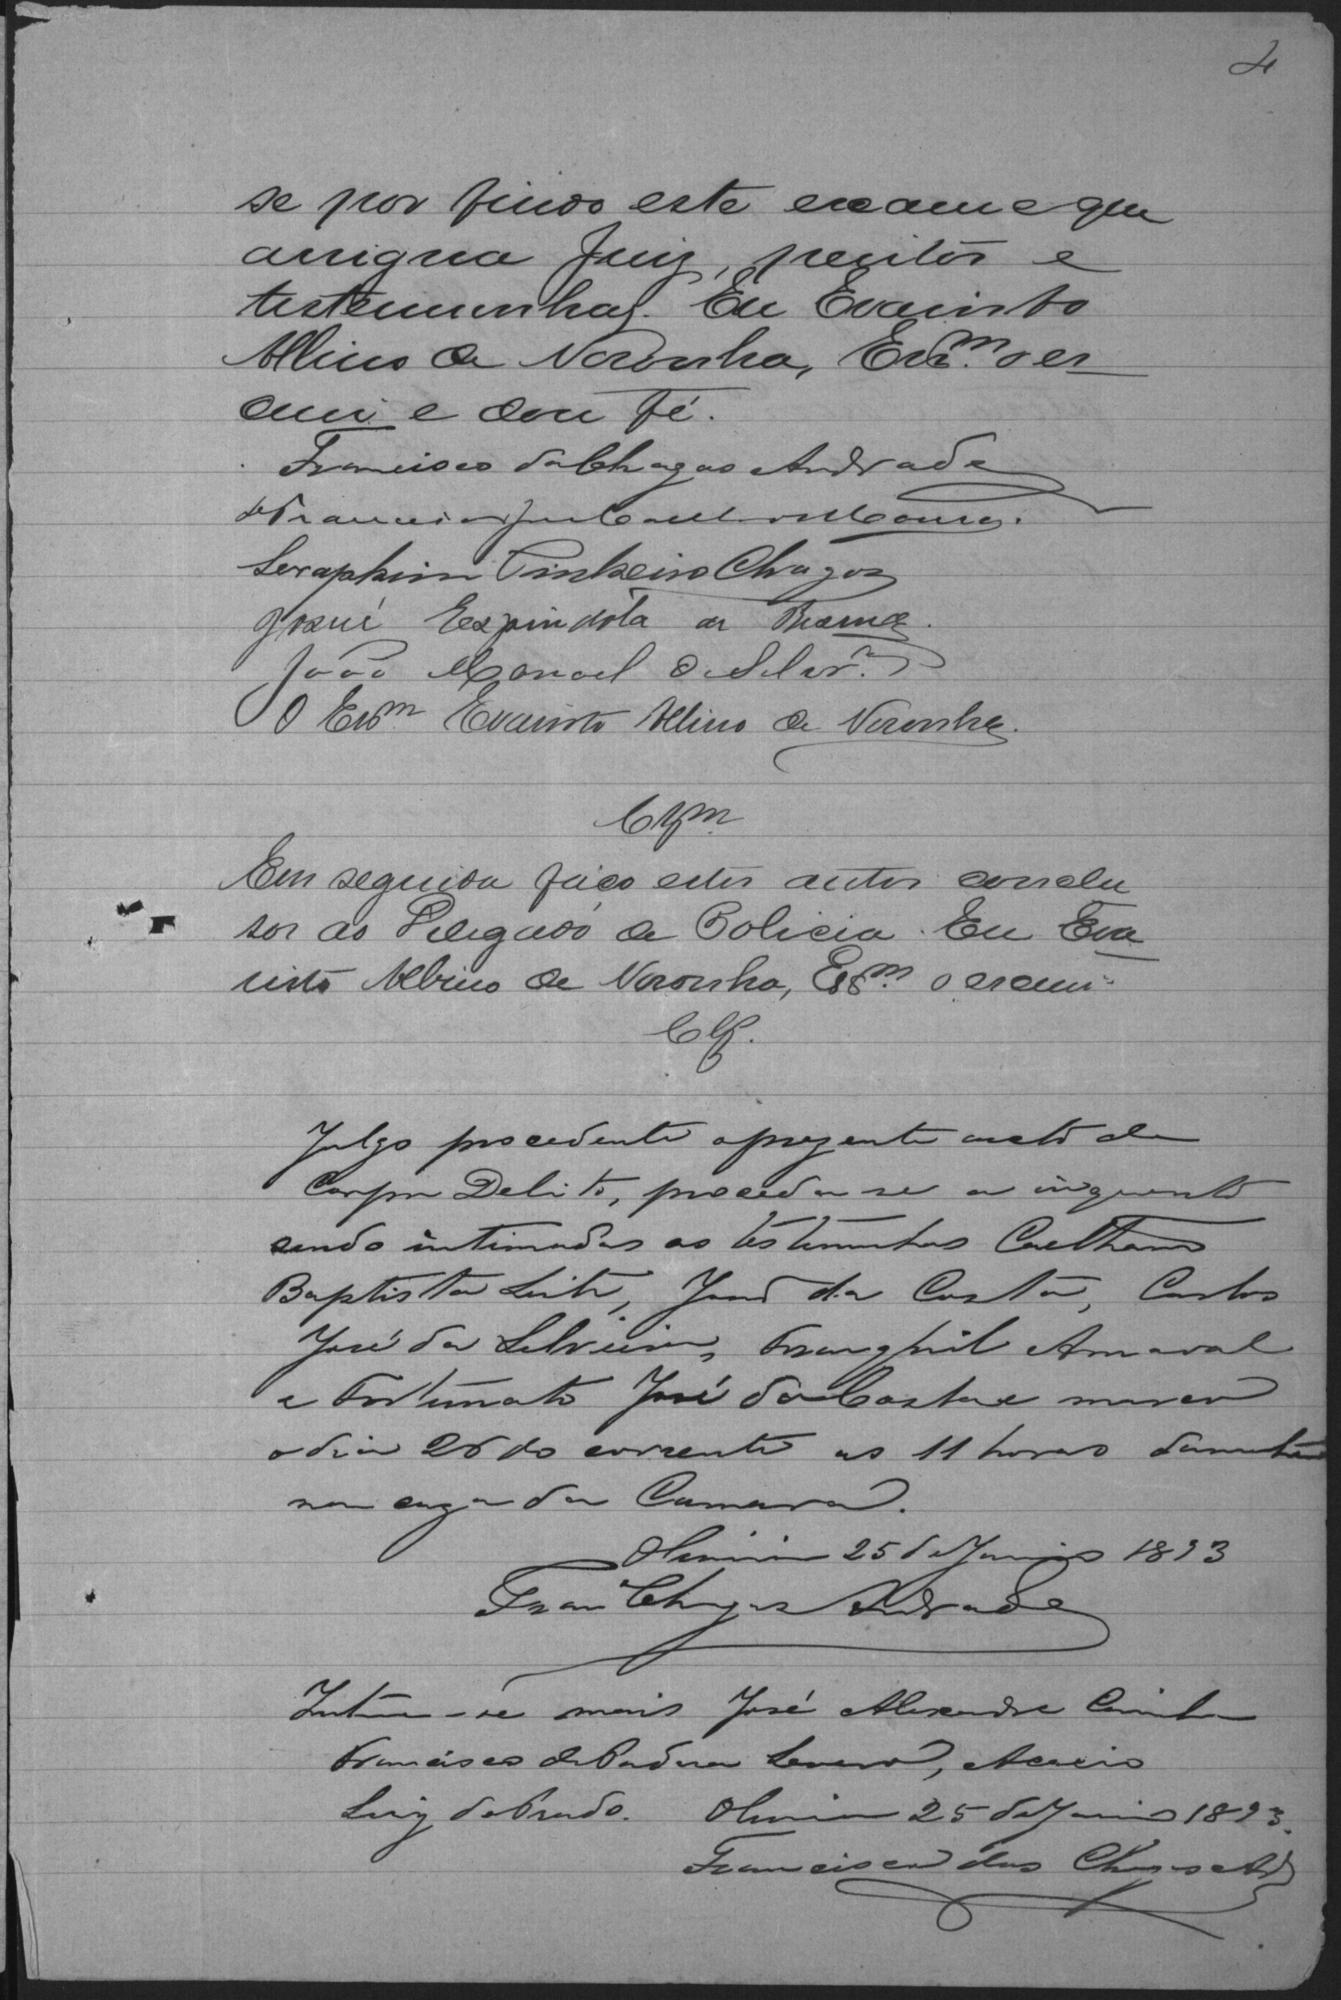 4
se por findo este exame que
assigna Juiz, peritos e
testemunhas. Eu Evaristo
Albino de Noronha, Escm. o es
crevi e dou fé.
Francisco das Chagas Andrade
Francisco
Seraphim Pinheiro Chagas
Josué Espindola de
João Manoel da Silvr.ª
O Escm. Evaristo Albino de Noronha.
Clsm.
Em seguida faço estes autos conclu
sos ao Delegado de Policia. Eu Eva
risto Albino de Noronha, Escm. o escrevi
Cls.
Julgo procedente o prezente auto de
Corpo Delito, proceda-se a inquerito
sendo intimadas as testemunhas Caethano
Baptista Leite, José da Costa, Carlos
José da Silveira, Amaral
e Fortunato José da Costa e marco
o dia 26 do corrente as 11 horas damanhã
na caza da Camara.
25 de 1893
Fran Chagas Andrade
Intime-se mais José Alexandre
Francisco de Padua, Acacio
Luiz do Prado. 25 de 1893.
Francisco das Chagas And